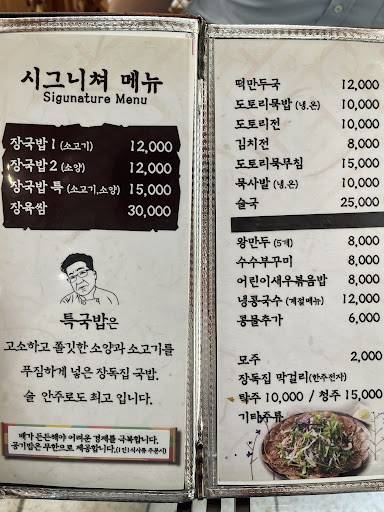 시그니쳐 메뉴
Sigunature Menu
장국밥 1 (소고기) 12,000
장국밥 2 (소양) 12,000
장국밥 특 (소고기,소양) 15,000
장육쌈 30,000
특국밥은
고소하고 쫄깃한 소양과 소고기를
푸짐하게 넣은 장독집 국밥.
술 안주로도 최고 입니다.
배가 든든해야 어려운 경제를 극복합니다.
공기밥은 무한으로 제공합니다.(1인1식사류 주문시)
떡만두국 12,000
도토리묵밥 (냉,온) 10,000
도토리전 10,000
김치전 8,000
도토리묵무침 15,000
묵사발 (냉,온) 10,000
술국 25,000
왕만두 (5개) 8,000
수수부꾸미 8,000
어린이새우볶음밥 8,000
냉콩국수 (계절메뉴) 12,000
콩물추가 6,000
모주 2,000
장독집 막걸리(한주전자)
탁주 10,000 / 청주 15,000
기타주류